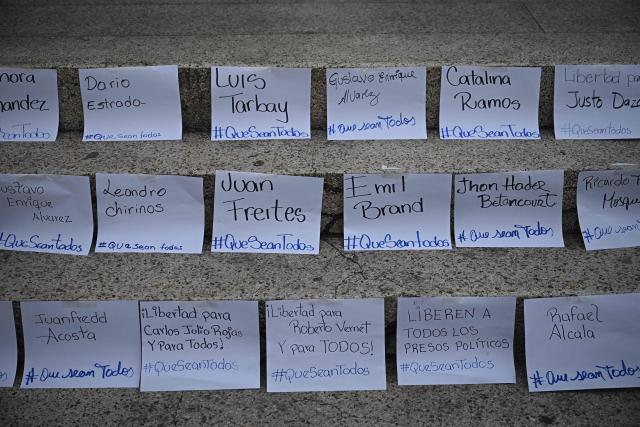 nora
nandez
#QueSeanTodos
Dario
Estrada
#QueSeantodos
Luis
Tarbay
#QueSeanTodos
Gustavo Enrique
Alvarez
#Que sean Todos
Catalina
Ramos
#QueSeanTodos
Libertad para
Justo Daza
#QueSeanTodos
Gustavo
Enrique
Alvarez
#QueSeanTodos
Leandro
Chirinos
#Que sean todos
Juan
Freites
#QueSeanTodos
Emil
Brand
#QueSeanTodos
Jhon Hader
Betancourt
#Que sean Todos
Ricardo
Mosqu
#Que sean
Juanfredd
Acosta
#Que sean Todos
¡Libertad para
Carlos Julio Rojas
Y para Todos!
#QueSeanTodos
¡Libertad para
Roberto Vernet
Y para TODOS!
#QueSeanTodos
LIBEREN A
TODOS LOS
PRESOS POLÍTICOS
#QueSeanTodos
Rafael
Alcala
#Que sean Todos